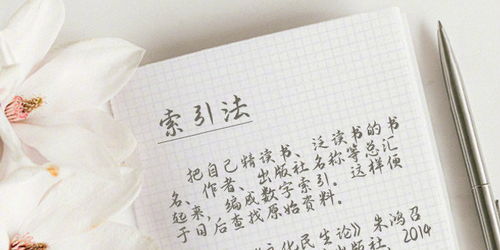 索引法
把自己精读书、泛读书的书
名、作者、出版社名称等总汇
起来，编成数字索引。这样便
于日后查找原始资料。
文化民生论》朱鸿召
出版社、2014